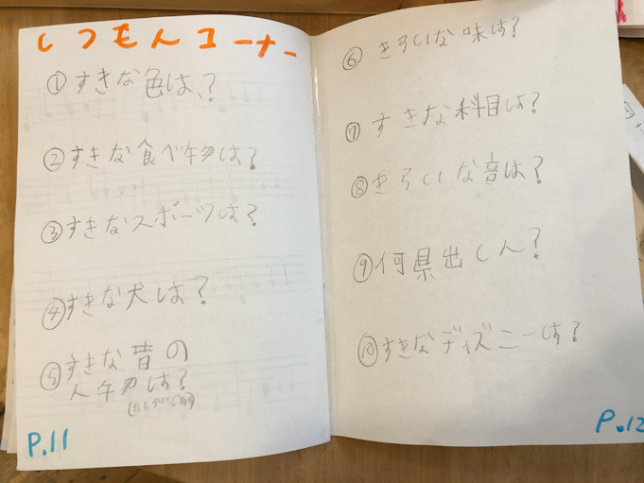 しつもんコーナー
①すきな色は、?
②すきな食べ物は?
③すきなスポーツは?
④すきな犬は?
⑤すきな昔の
人物は?
P.11
⑥きらいな味は?
⑦すきな科目は?
⑧きらいな音は?
⑨何県出しん?
⑩すきなディズニーは?
P.12